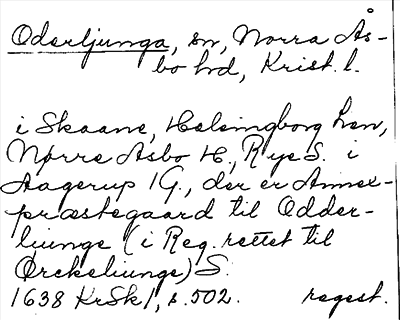 Oderljunga, sn, Norra Ås-
bo hd, Krist. l.
i Skaane, Helsingborg Len,
Nørre Asbo H., Rye S. i
Aagerup 1 G., der er Annex-
præstegaard til Odder-
liunge (i Reg. rettet til
Ørckeliunge) S.
1638 KrSk 1, s. 502. regest.